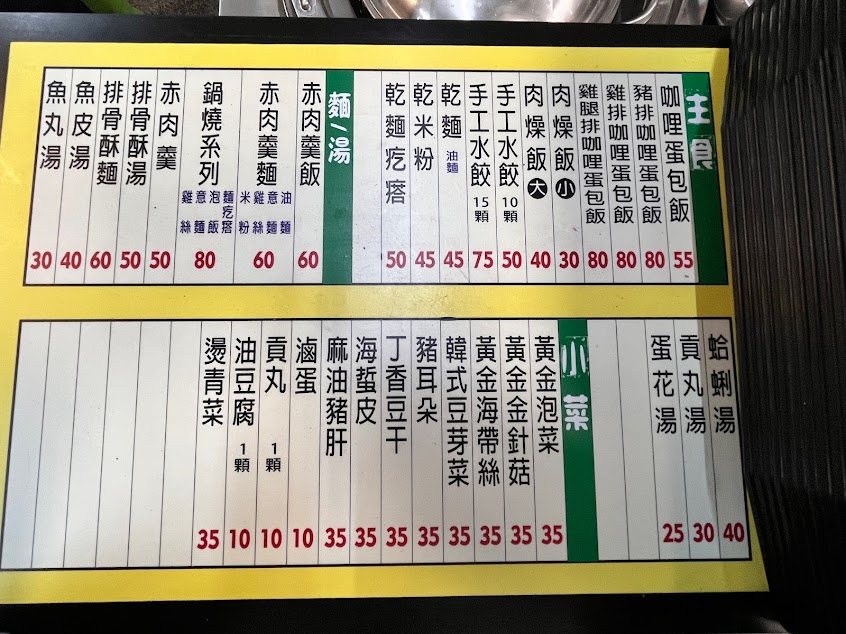 主食
咖哩蛋包飯 55
豬排咖哩蛋包飯 80
雞排咖哩蛋包飯 80
雞腿排咖哩蛋包飯 80
肉燥飯 小 30
肉燥飯 大 40
手工水餃 10顆 50
手工水餃 15顆 75
乾麵 油麵 45
乾米粉 45
乾麵疙瘩 50
麵/湯
赤肉羹飯 60
赤肉羹麵 油麵 意麵 雞絲 米粉 60
鍋燒系列 麵疙瘩 泡飯 意麵 雞絲 80
赤肉羹 50
排骨酥湯 50
排骨酥麵 60
魚皮湯 40
魚丸湯 30
蛤蜊湯 40
貢丸湯 30
蛋花湯 25
小菜
黃金泡菜 35
黃金金針菇 35
黃金海帶絲 35
韓式豆芽菜 35
豬耳朵 35
丁香豆干 35
海蜇皮 35
麻油豬肝 35
滷蛋 10
貢丸 1顆 10
油豆腐 1顆 10
燙青菜 35